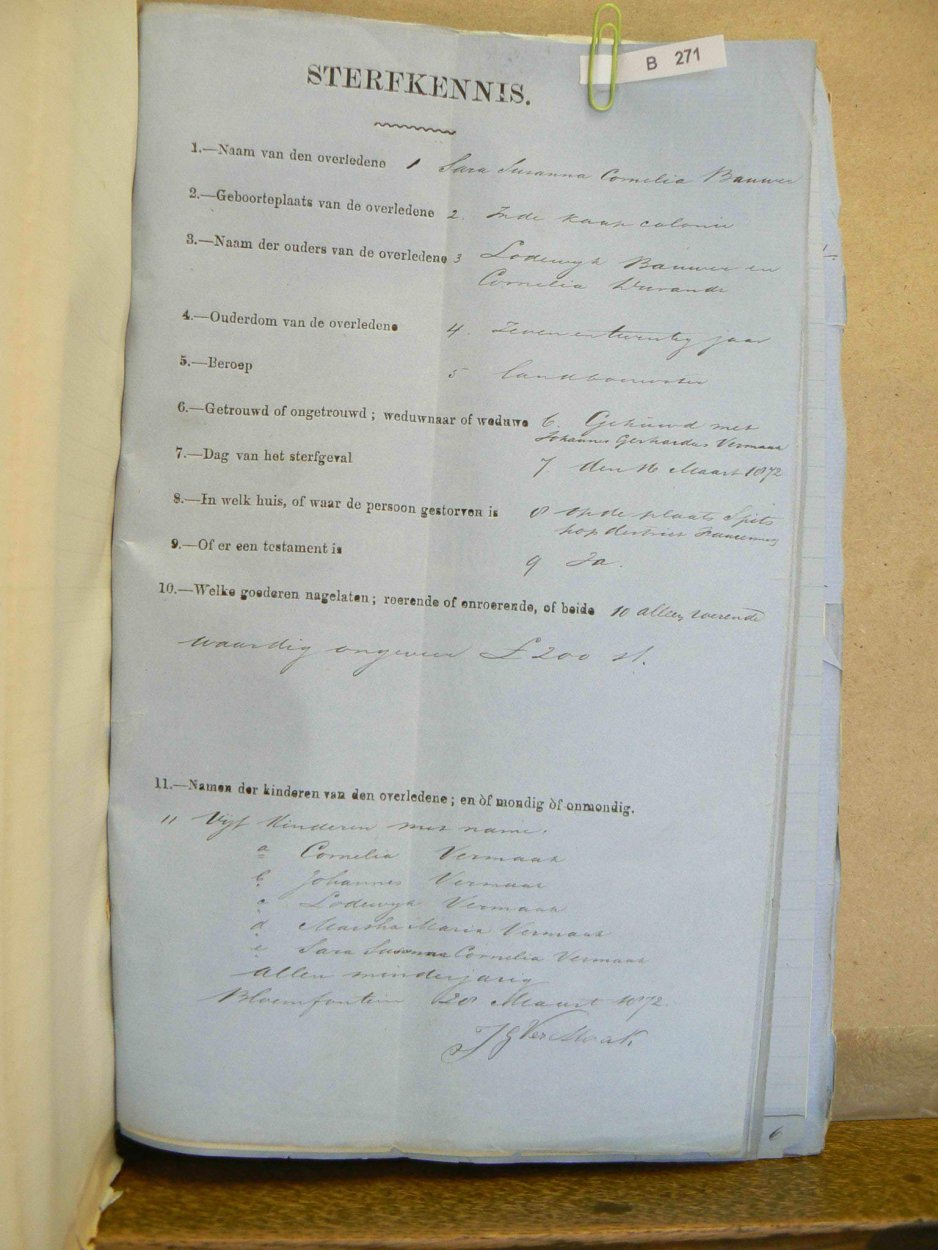 B 271
STERFKENNIS.
1.—Naam van den overledene 1 Sara Susanna Cornelia Bauwer
2.—Geboorteplaats van de overledene 2. In de kaap colonie
3.—Naam der ouders van de overledene 3 Lodewyk Bauwer en
Cornelia
4.—Ouderdom van de overledene 4. Zeven en twintig jaar
5.—Beroep 5
6.—Getrouwd of ongetrouwd; weduwnaar of weduwe 6. Gehuwd met
Johannes Gerhardus Vermaak
7.—Dag van het sterfgeval 7 den 16 Maart 1872
8.—In welk huis, of waar de persoon gestorven is 8 op de plaats Spits
kop district
9.—Of er een testament is 9 Ja.
10.—Welke goederen nagelaten; roerende of onroerende, of beide 10 alleen roerende
waardig ongeveer £200 st.
11.—Namen der kinderen van den overledene; en òf mondig òf onmondig.
11 Vyf kinderen met name.
a Cornelia Vermaak
b Johannes Vermaak
c Lodewyk Vermaak
d Martha Maria Vermaak
e Sara Susanna Cornelia Vermaak
Allen minderjarig
Bloemfontein 20 Maart 1872.
J G Vermaak
6